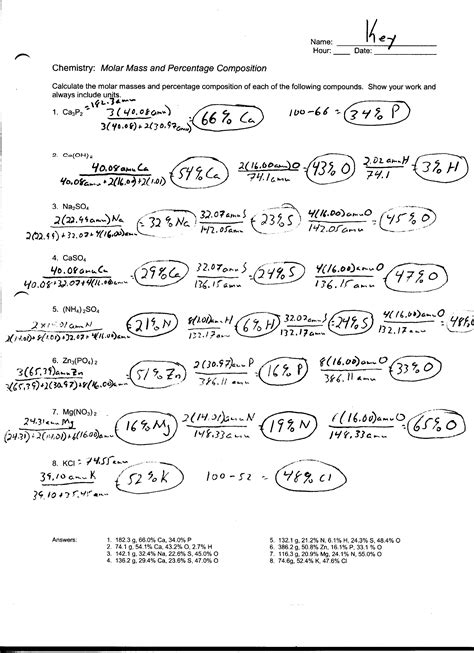 Name: Key
Hour: Date:
Chemistry: Molar Mass and Percentage Composition
Calculate the molar masses and percentage composition of each of the following compounds. Show your work and
always include units.
1. Ca₃P₂ = 182.3 amu
3(40.08amu)
3(40.08)+2(30.97amu)
66% Ca
100-66 = 34% P
2. Ca(OH)₂
40.08amu Ca
40.08amu+2(16.00)+2(1.01)
= 54% Ca
2(16.00amu)O
74.1amu
= 43% O
2.02 amu H
74.1
= 3% H
3. Na₂SO₄
2(22.99amu)Na
2(22.99)+32.07+4(16.00)amu
= 32% Na
32.07amu S
142.05amu
= 23% S
4(16.00)amu O
142.05amu
= 45% O
4. CaSO₄
40.08amu Ca
40.08+32.07+4(16.00)amu
= 29% Ca
32.07amu S
136.15amu
= 24% S
4(16.00)amu O
136.15amu
= 47% O
5. (NH₄)₂SO₄
2×14.01amu N
= 21% N
8(1.01)amu H
132.17amu
= 6% H
32.07amu S
132.17amu
= 24% S
4(16.00)amu O
132.17amu
= 48% O
6. Zn₃(PO₄)₂
3(65.39)amu Zn
3(65.39)+2(30.97)+8(16.00)amu
= 51% Zn
2(30.97)amu P
386.11 amu
= 16% P
8(16.00)amu O
386.11 amu
= 33% O
7. Mg(NO₃)₂
24.31amu
16% Mg
2(14.01)amu N
148.33amu
= 19% N
(16.00)amu O
148.33amu
= 65% O
8. KCl = 74.55amu
39.10amu K
39.10+35.45amu
= 52% K
100-52 = 48% Cl
Answers:
1. 182.3 g, 66.0% Ca, 34.0% P
2. 74.1 g, 54.1% Ca, 43.2% O, 2.7% H
3. 142.1 g, 32.4% Na, 22.6% S, 45.0% O
4. 136.2 g, 29.4% Ca, 23.6% S, 47.0% O
5. 132.1 g, 21.2% N, 6.1% H, 24.3% S, 48.4% O
6. 386.2 g, 50.8% Zn, 16.1% P, 33.1 % O
7. 116.3 g, 20.9% Mg, 24.1% N, 55.0% O
8. 74.6g, 52.4% K, 47.6% Cl